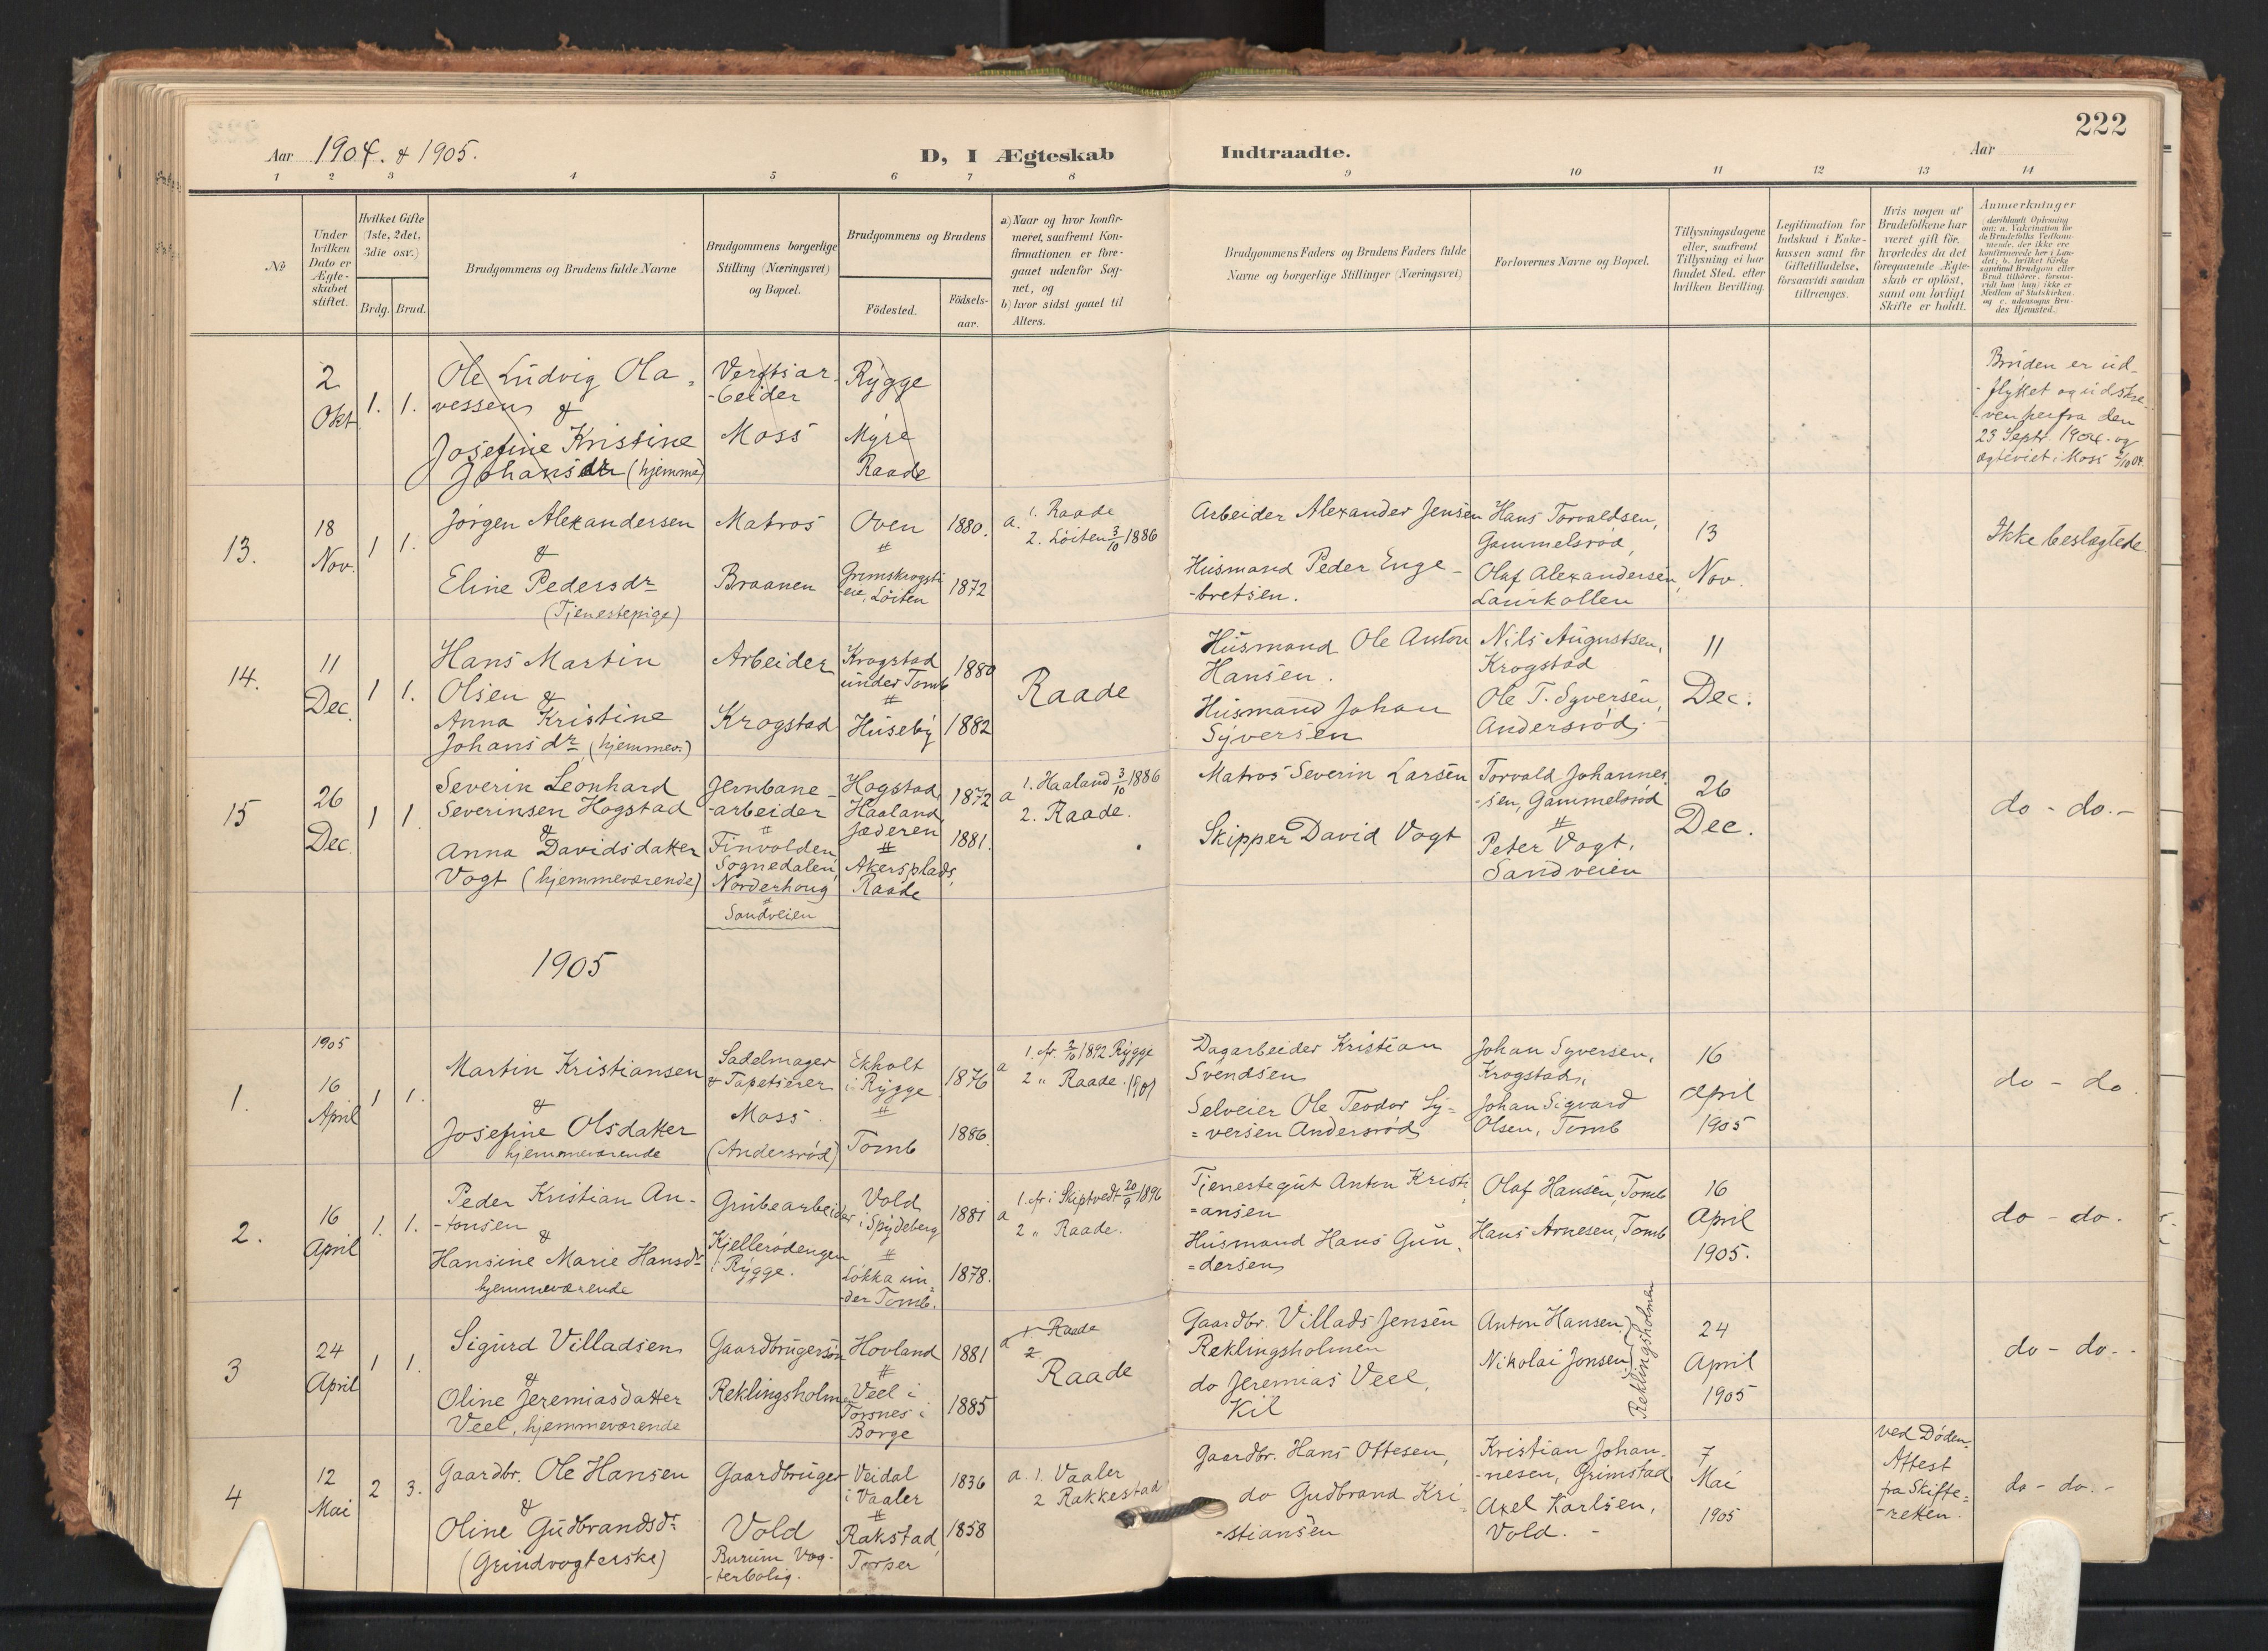 222
Aar 1904. & 1905.
D, I Ægteskab
Indtraadte.
Aar
1 2 3 4 5 6 7 8 9 10 11 12 13 14
No
Under
hvilken
Dato er
Ægte-
skabet
stiftet.
Hvilket Gifte
(1ste, 2det,
3die osv.)
Brdg. Brud.
Brudgommens og Brudens fulde Navne
Brudgommens borgerlige
Stilling (Næringsvei)
og Bopæl.
Brudgommens og Brudens
Födested.
Födsels-
aar.
a) Naar og hvor konfir-
meret, saafremt Kon-
firmationen er fore-
gaaet udenfor Sog-
net, og
b) hvor sidst gaaet til
Alters.
Brudgommens Faders og Brudens Faders fulde
Navne og borgerlige Stillinger (Næringsvei)
Forlovernes Navne og Bopæl.
Tillysningsdagene
eller, saafremt
Tillysning ei har
fundet Sted, efter
hvilken Bevilling.
Legitimation for
Indskud i Enke-
kassen samt for
Giftetilladelse,
forsaavidt saadan
tiltrænges.
Hvis nogen af
Brudefolkene har
været gift för,
hvorledes da det
foregaaende Ægte-
skab er oplöst,
samt om lovligt
Skifte er holdt.
Anmerkninger
(deriblandt Oplysning
om: a. Vakcination for
de Brudefolks Vedkom-
mende, der ikke ere
konfirmerede her i Lan-
det; b. hvilket Kirke-
samfund Brudgom eller
Brud tilhörer, forsaa-
vidt han (hun) ikke er
Medlem af Statskirken,
og c. udensogns Bru-
des Hjemsted.)
2
Okt
1. 1.
Ole Ludvig Ola-
vessen &
Josefine Kristine
Johansdr (hjemme)
Verftsar-
-beider
Moss
Rygge
Myre
Raade
Bruden er ud-
-flyttet og udskre-
-ven herfra den
23 Septr. 1904. og
ægteviet i Moss 2/10 04.
13.
18
Nov.
1 1.
Jørgen Alexandersen
&
Eline Pedersdr
(Tjenestepige)
Matros
Braanen
Oven
#
Grimskrogsti
-eie, Löiten
1880.
1872
a. 1. Raade
2. Löiten 3/10 1886
Arbeider Alexander Jensen
Husmand Peder Enge-
-bretsen.
Hans Torvaldsen,
Gammelsrød,
Olaf Alexandersen,
Laurkollen
13
Nov.
Ikke beslægtede.
14.
11
Dec.
1 1.
Hans Martin
Olsen &
Anna Kristine
Johansdr (hjemmev.)
Arbeider
Krogstad
Krogstad
under Tomb
#
Huseby
1880
1882
Raade
Husmand Ole Anton
Hansen.
Husmand Johan
Syversen
Nils Augustsen,
Krogstad
Ole T. Syversen,
Andersrød.
11
Dec.
15
26
Dec.
1 1.
Severin Leonhard
Severinsen Hogstad
&
Anna Davidsdatter
Vogt (hjemmeværende)
Jernbane-
-arbeider
#
Finvolden,
Sognedalen,
Norderhoug
#
Sandveien
Hogstad,
Haaland,
Jæderen
#
Akersplads,
Raade
1872
1881.
a 1. Haaland 3/10 1886
2. Raade.
Matros Severin Larsen
Skipper David Vogt
Torvald Johannes-
-sen, Gammelsrød
#
Peter Vogt,
Sandveien
26
Dec.
do - do. -
1905
1.
1905
16
April
1 1.
Martin Kristiansen
&
Josefine Olsdatter
hjemmeværende
Sadelmager
& Tapetserer
Moss.
(Andersrød)
Ekholt
i Rygge
#
Tomb
1876
1886.
a 1. fr. 2/10 1892 Rygge
2 " Raade. 1901
Dagarbeider Kristian
Svendsen
Selveier Ole Teodor Sy=
=versen Andersrød
Johan Syversen,
Krogstad,
Johan Sigvard
Olsen, Tomb
16
April
1905
do - do
2.
16
April
1. 1.
Peder Kristian An-
-tonsen
&
Hansine Marie Hansdr
hjemmeværende
Grubearbeider
Kjellerødengen
i Rygge.
Vold
i Spydeberg
#
Løkka un-
-der Tomb.
1881
1878.
a 1. fr i Skiptvedt 20/9 1896
2 " Raade.
Tjenestegut Anton Kristi
=ansen
Husmand Hans Gun-
=dersen
Olaf Hansen, Tomb
Hans Arnesen, Tomb
16
April
1905.
do - do.
3
24
April
1 1.
Sigurd Villadsen
&
Oline Jeremiasdatter
Veel, hjemmeværende
Gaardbrugersøn
Reklingsholmen
Hovland
#
Veel i
Torsnes i
Borge
1881
1885
a 1. Raade
2
Raade
Gaardbr. Villads Jensen
Reklingsholmen
do Jeremias Veel,
Kil
Anton Hansen
Nikolai Jonsen
Reklingsholmen
24
April
1905
do - do. -
4
12
Mai
2 3.
Gaardbr. Ole Hansen
&
Oline Gudbrandsdr
(Grindvogterske)
Gaardbruger
Vold
Burum Vog-
-terbolig.
Veidal
i Vaaler
#
Rakstad,
Torper
1836
1858
a. 1. Vaaler
2 Rakkestad
Gaardbr. Hans Ottesen,
do Gudbrand Kri
-stiansen
Kristian Johan-
-nesen, Grimstad
Axel Karlsen,
Vold. -
7
Mai
1905
ved Døden.
Attest
fra Skifte=
-retten.
do - do. -